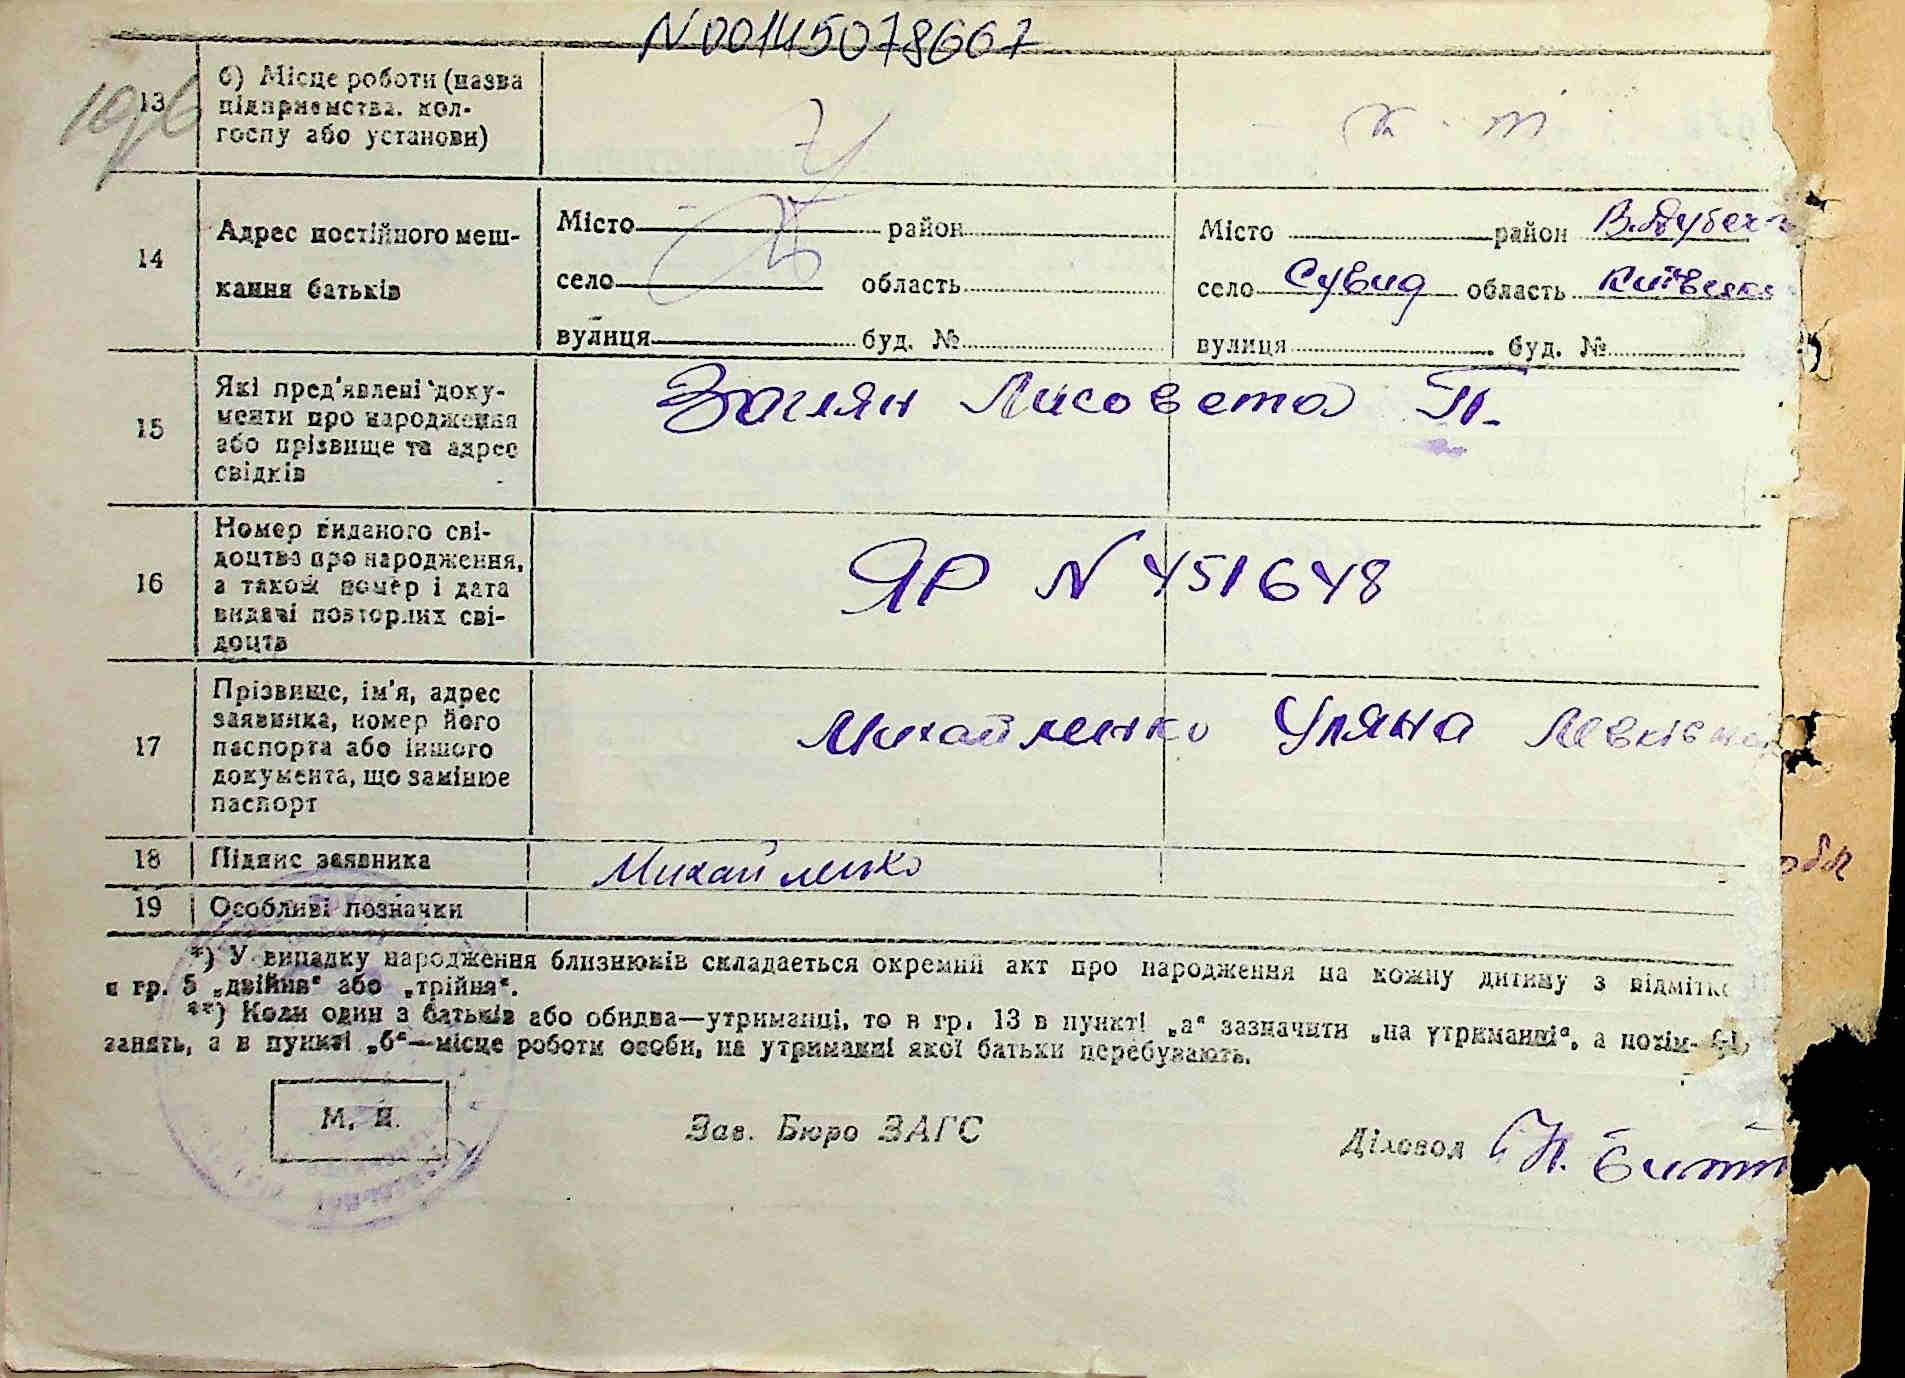 N00145078667
13 б) Місце роботи (назва
підприємства, кол-
госпу або установи)
14 Адрес постійного меш-
кання батьків
Місто район
село область
вулиця буд. №
Місто район В.Дубечн
село Сувид область Київська
вулиця буд. №
15 Які пред'явлені доку-
менти про народження
або прізвище та адрес
свідків
Лисовета П.
16 Номер виданого сві-
доцтва про народження,
а також номер і дата
видачі повторних сві-
доцтв
ЯР N 451648
17 Прізвище, ім'я, адрес
заявника, номер його
паспорта або іншого
документа, що замінює
паспорт
Михайленко Уляна Левківна
18 Підпис заявника Михайленко
19 Особливі позначки
*) У випадку народження близнюків складається окремий акт про народження на кожну дитину з відмітко
в гр. 5 „двійня“ або „трійня“.
**) Коли один з батьків або обидва—утриманці, то в гр. 13 в пункті „а“ зазначити „на утриманні“, а
занять, а в пункті „б“—місце роботи особи, на утриманні якої батьки перебувають.
М. П.
Зав. Бюро ЗАГС
Діловод